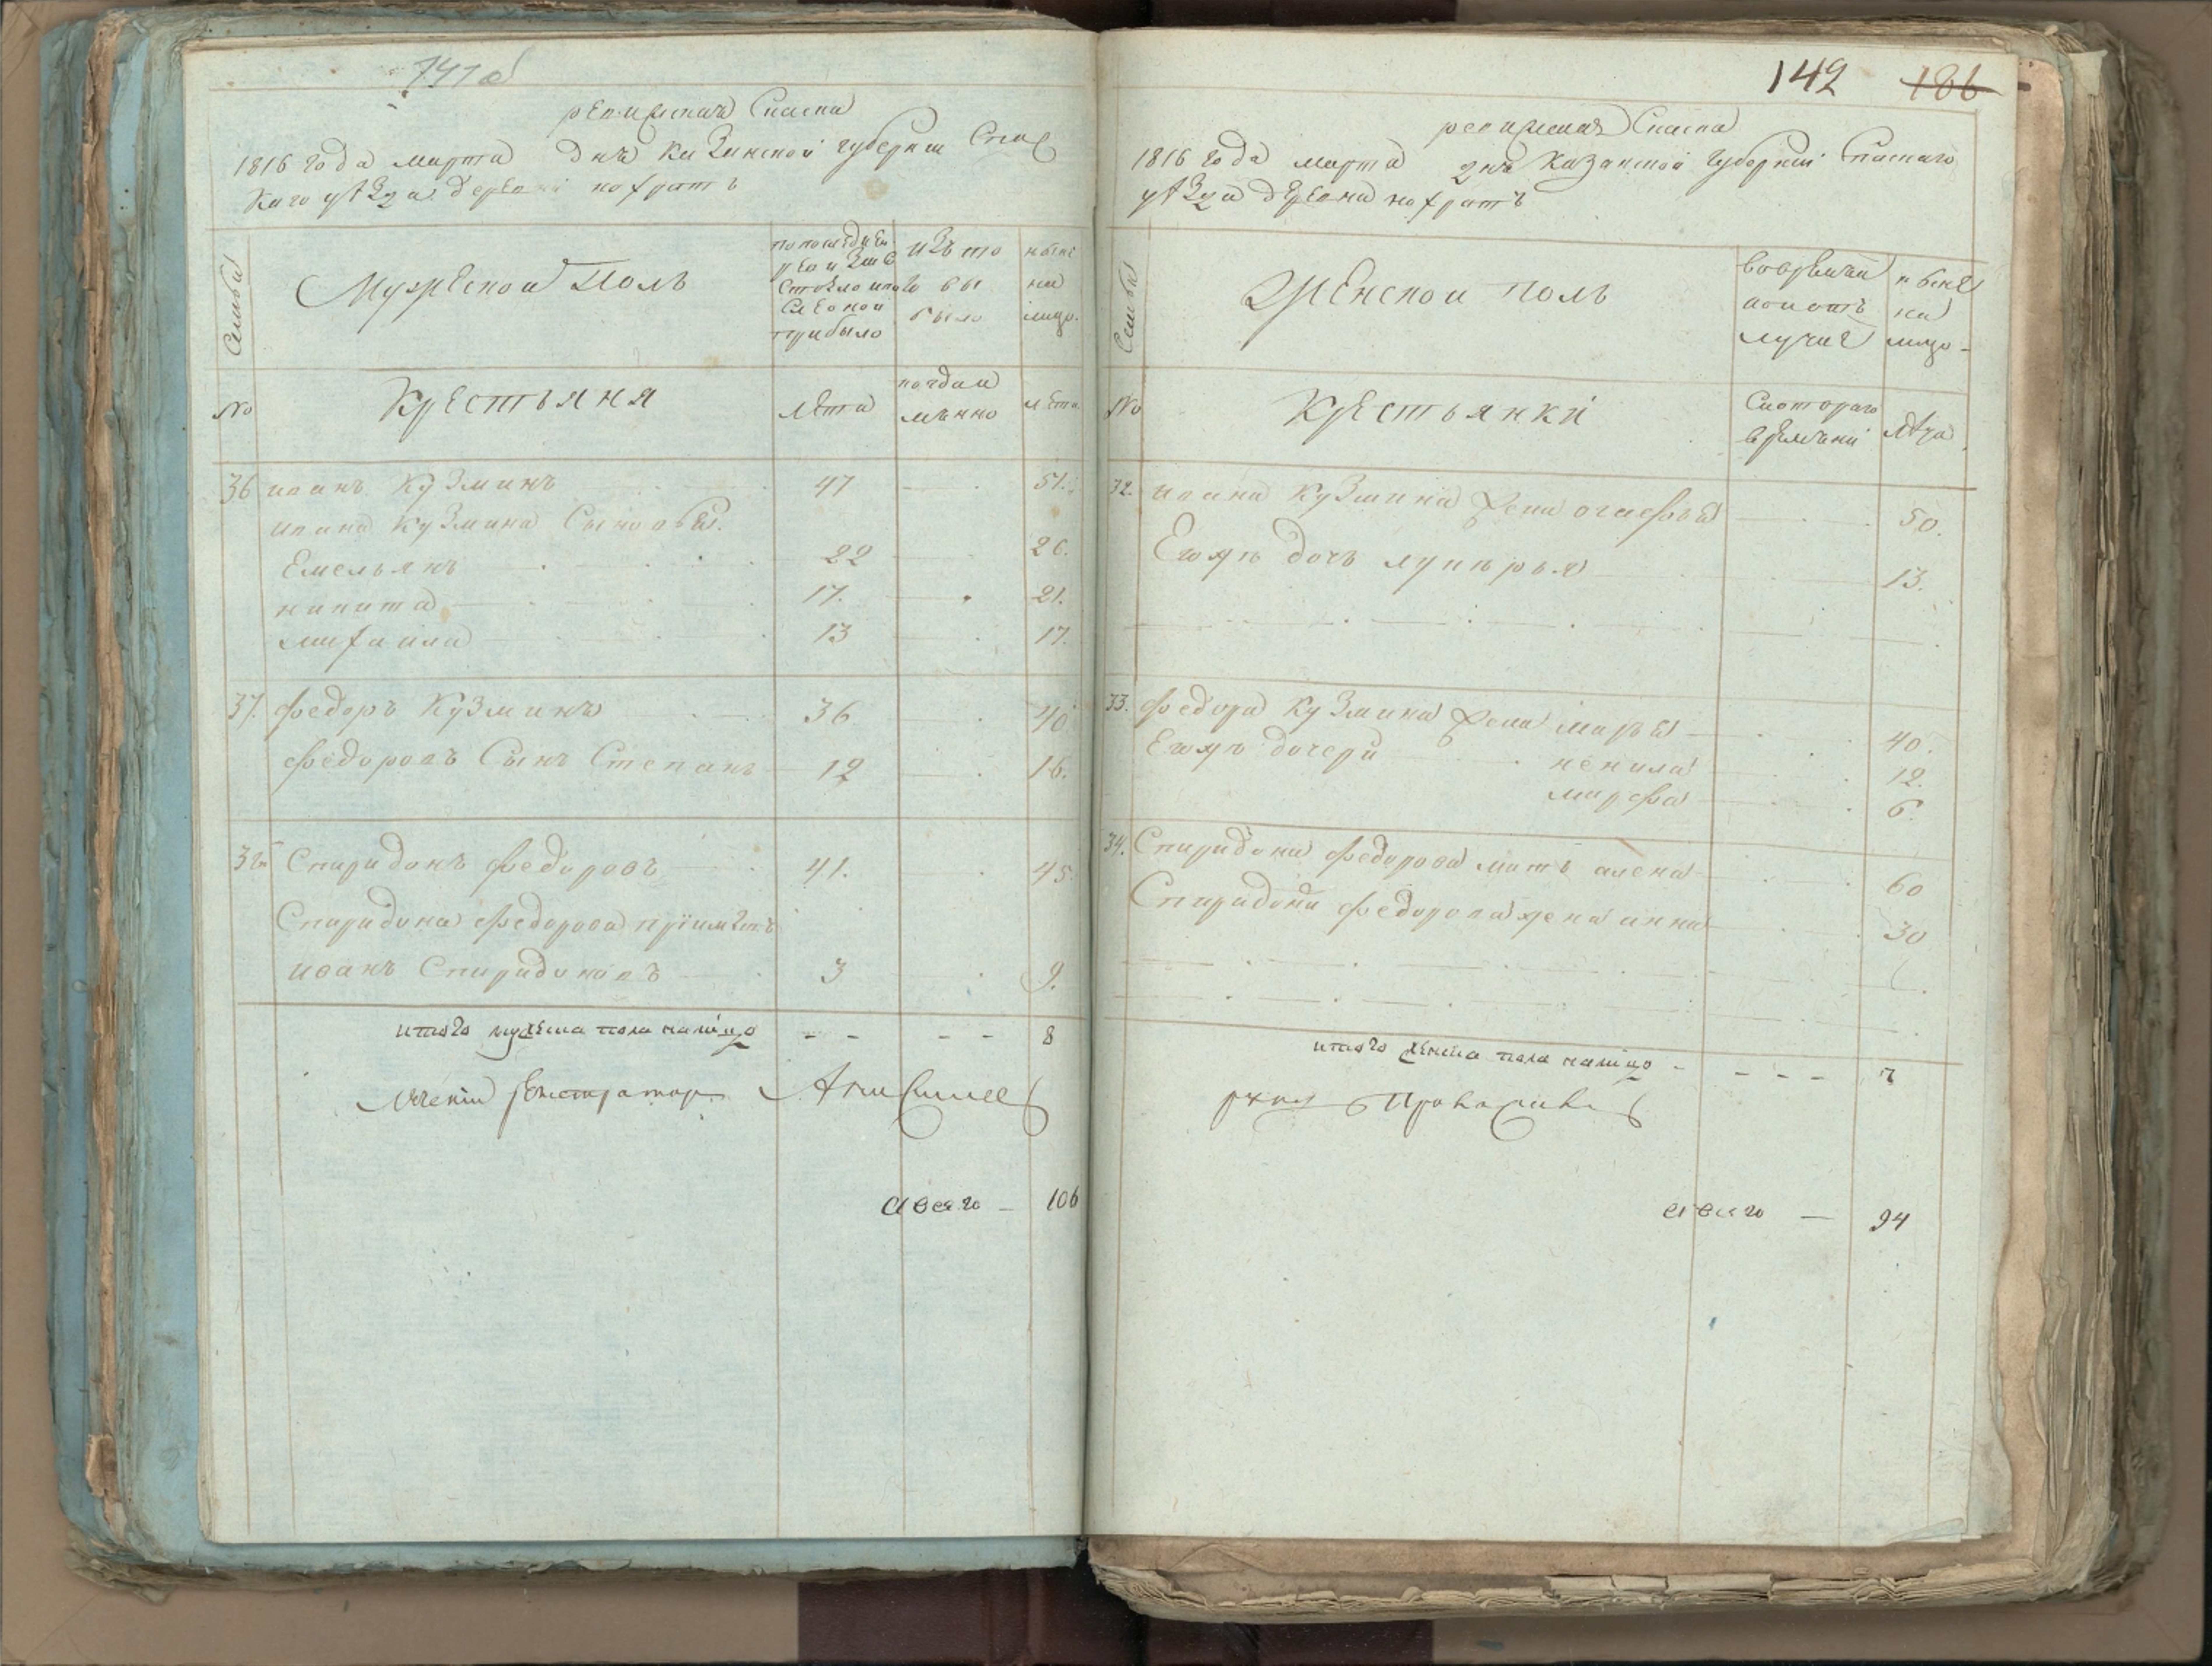 141 об
ревижская Скаска
1816 года марта дня Казанской губернии Спас
каго уѣзда деревни нохратъ
Семьи
Мужеской Полъ
по последней ревизіи состояло и после оной прибыло
изъ того выбыло
ныне на лицо
№
Крестьяня
лета
лета
36 иванъ Кузминъ 47 51.
ивана Кузмина Сыновья.
Емельянъ 22 26.
никита 17. 21.
михаила 13 17.
37. федоръ Кузминъ 36 40
федоровъ Сынъ Степанъ 12 16.
38 Спиридонъ федоровъ 41. 45
Спиридона федорова пріимышъ
иванъ Спиридоновъ 3 9.
итого мужеска пола налицо - - - - 8
А всего - 106
142 186
ревижская Скаска
1816 года марта дня Казанской губерніи Спаскаго
уѣзда деревни нохратъ
Семьи
Женской полъ
во временной отлучке
ныне на лицо
№
Крестьянки
С котораго времени
лѣта
32. ивана Кузмина жена 50.
Ево дочь лукерья 13.
33. федора Кузмина жена марья 40.
Ево дочери ненила 12.
марфа 6.
34. Спиридона федорова мать алена 60
Спиридона федорова жена анна 30
итого женска пола налицо - - - - 7
А всего - 94